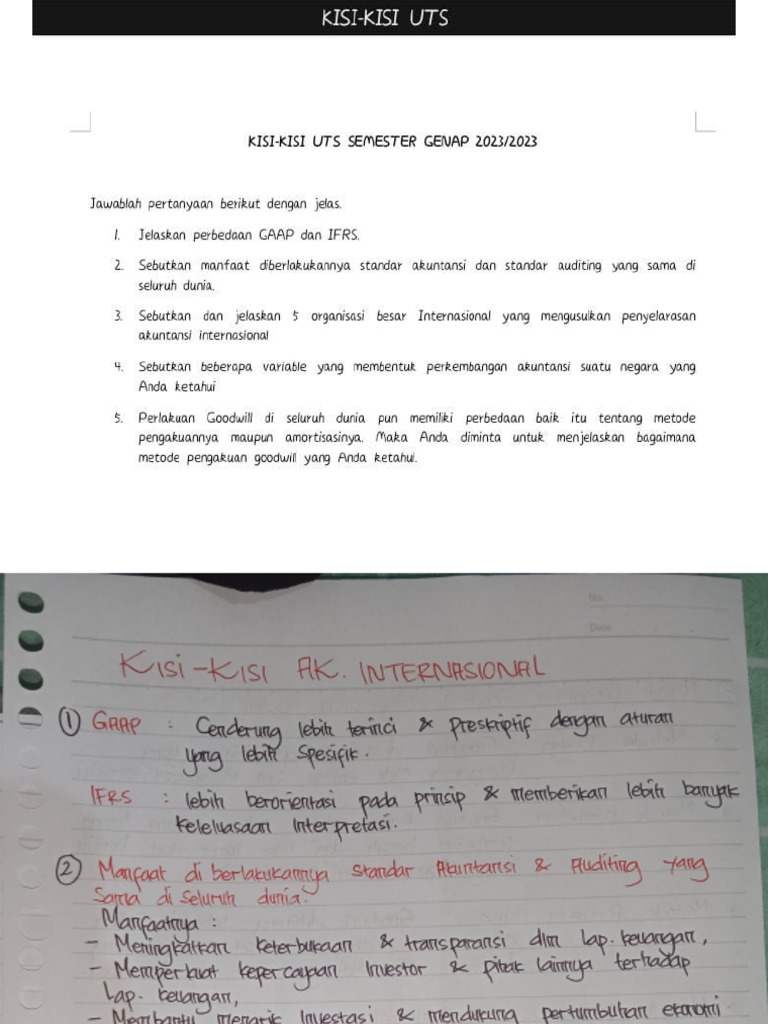 KISI-KISI UTS
KISI-KISI UTS SEMESTER GENAP 2023/2023
Jawablah pertanyaan berikut dengan jelas.
1. Jelaskan perbedaan GAAP dan IFRS.
2. Sebutkan manfaat diberlakukannya standar akuntansi dan standar auditing yang sama di
seluruh dunia.
3. Sebutkan dan jelaskan 5 organisasi besar Internasional yang mengusulkan penyelarasan
akuntansi internasional
4. Sebutkan beberapa variable yang membentuk perkembangan akuntansi suatu negara yang
Anda ketahui
5. Perlakuan Goodwill di seluruh dunia pun memiliki perbedaan baik itu tentang metode
pengakuannya maupun amortisasinya. Maka Anda diminta untuk menjelaskan bagaimana
metode pengakuan goodwill yang Anda ketahui.
No
Date
KISI-KISI AK. INTERNASIONAL
① GAAP : Cenderung lebih terinci & Preskriptif dengan aturan
yang lebih Spesifik.
IFRS : lebih berorientasi pada prinsip & memberikan lebih banyak
keleluasaan Interpretasi.
② Manfaat di berlakukannya Standar Akuntansi & Auditing yang
Sama di Seluruh dunia.
Manfaatnya :
- Meningkatkan keterbukaan & transparansi dlm Lap. keuangan,
- Memperkuat kepercayaan Investor & pihak lainnya terhadap
Lap. keuangan,
- Membantu menarik Investasi & mendukung pertumbuhan ekonomi